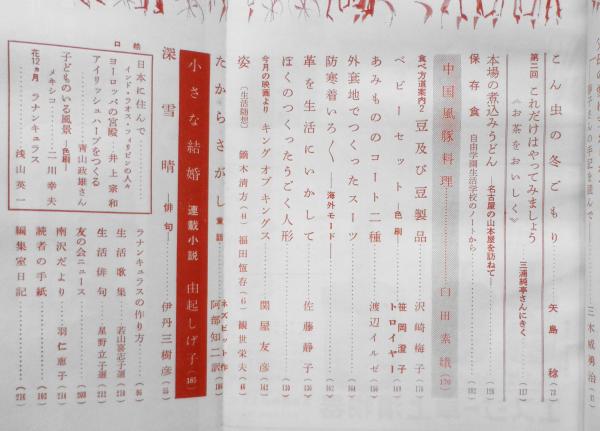 こん虫の冬ごもり 矢島稔 (72)
第二回 これだけはやってみましょう
《お茶をおいしく》 三浦純亭さんにきく (117)
本場の煮込みうどん ―名古屋の山本屋を訪ねて― (126)
保存食 自由学園生活学校のノートから (182)
中国風豚料理 臼田素娥 (170)
食べ方道案内2 豆及び豆製品 沢崎梅子 (176)
ベビーセット ―色刷― 笹岡澄子 トロイヤー (149)
あみもののコート二種 渡辺イルゼ
外套地でつくったスーツ
防寒着いろ〱 ―海外モード―
革を生活にいかして 佐藤静子
ぼくのつくったうごく人形 (130)
今月の映画より キングオブキングス 関屋友彦 (142)
姿 (生活随想) 鏑木清方 福田恆存(6) 観世栄夫
たからさがし 童話 ネズビット作 阿部知二訳
小さな結婚 連載小説 由起しげ子 (185)
深雪晴 ―俳句― 伊丹三樹彦
口絵
日本に住んで
インド・ラオス・フィリピンの人々
ヨーロッパの宮殿 井上宗和
アイリッシュハープをつくる 青山政雄さん
子どものいる風景 ―色刷―
メキシコ 二川幸夫
花12ヵ月 ラナンキュラス 浅山英一
ラナンキュラスの作り方 (95)
生活歌集 若山喜志子選 (210)
生活俳句 星野立子選 (212)
友の会ニュース (203)
南沢だより 羽仁恵子 (214)
読者の手紙 (102)
編集室日記 (216)